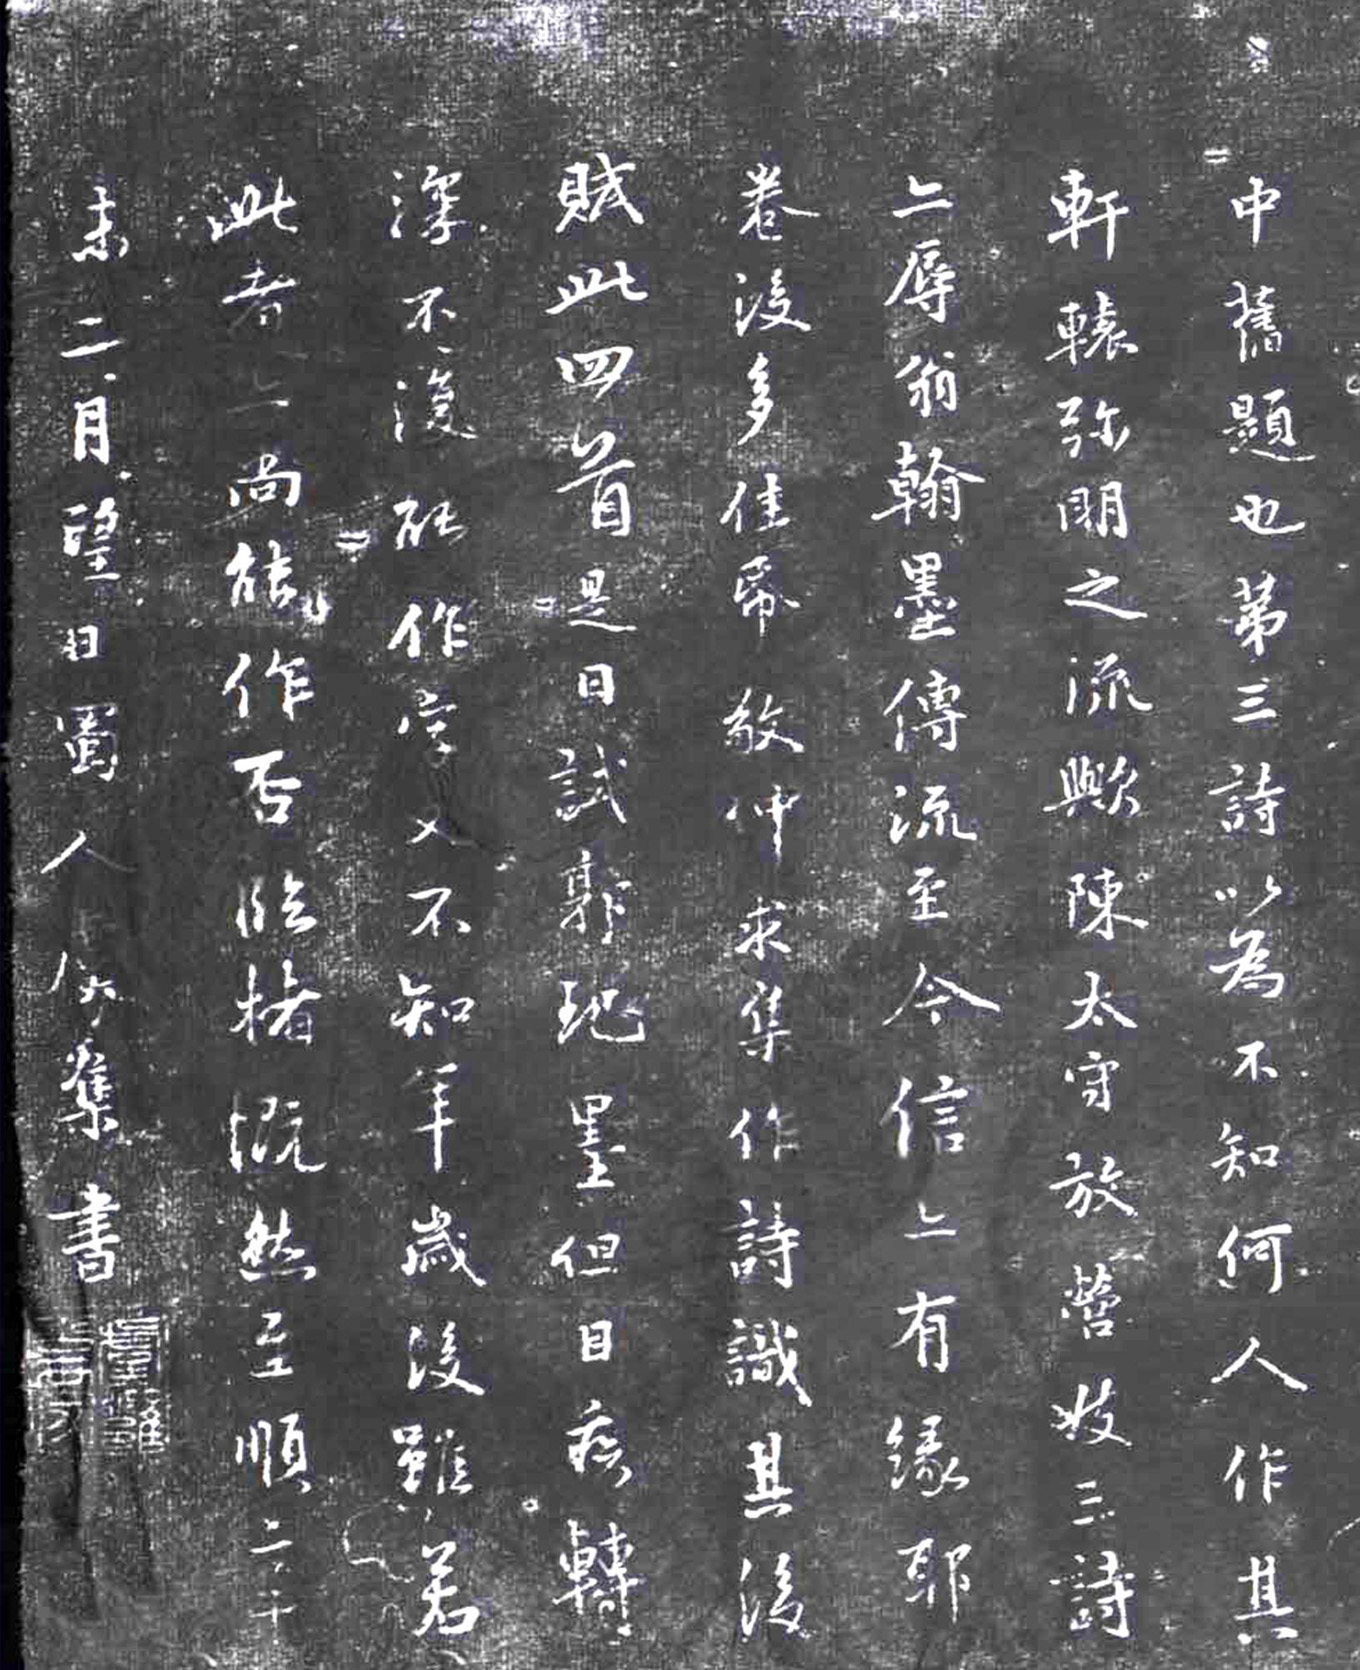 中舊題也第三詩以為不知何人作其
軒轅弥明之流歟陳太守放營妓三詩
亦辱翁翰墨傳流至今信亦有緣耶
卷後多佳帋敬仲求集作詩識其後
賦此四首是日試郭玘墨但目疾轉
深不復能作字又不知年歲後雖若
此者亦尚能作否臨楮慨然至順辛
未二月望日蜀人虞集書